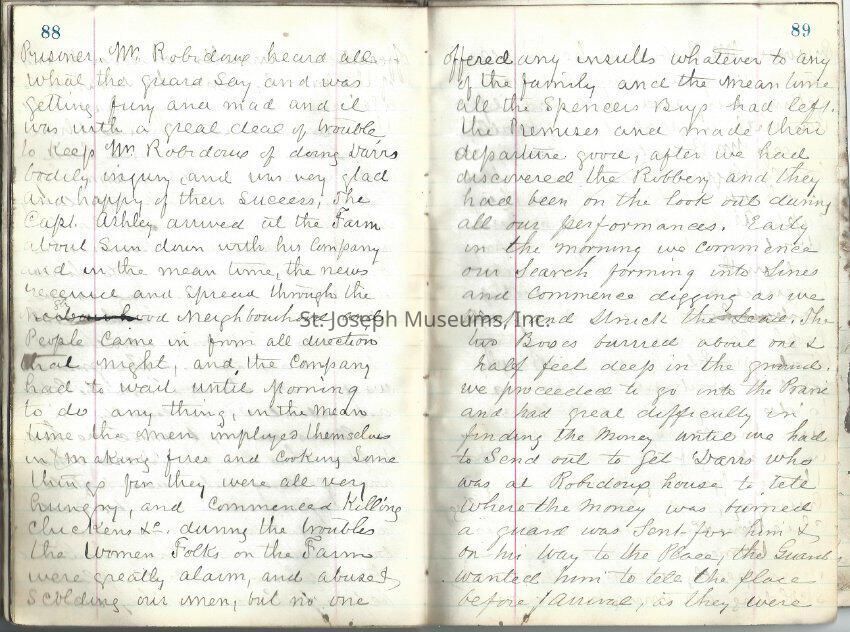 88
Prisoner, Mr. Robidoux heard all
what the guard Say and was
getting fury and mad and it
was with a great deal of trouble
to Keep Mr. Robidoux of doing Darrs
bodily injury and was very glad
and happy of their Success, The
Capt. Ashley arrived at the Farm
about Sun down with his Company
and in the mean time, the news
received and Spread through the
Neighbourhood and
People Came in from all direction
that night, and the Company
had to wait until Morning
to do any thing, in the mean
time the men imployed themselves
in making fire and Cooking Some
things for they were all very
hungry, and Commenced Killing
Chickens &c. during the troubles
the Women Folks on the Farm
were greatly alarm, and abuse &
Scolding our men, but no one
89
offered any insults whatever to any
of the family and the mean time
all the Spencers Boys had left
the Premises and made their
departure good, after we had
discovered the Robbery and they
had been on the look out during
all our performances. Early
in the morning we commence
our Search forming into Lines
and Commence digging as we
and Struck the Lead. The
two Boxes burried about one &
half feet deep in the ground.
we proceeded to go into the Prarie
and had great difficulty in
finding the Money until we had
to Send out to Get Darrs who
was at Robidoux house to tele
Where the Money was burried
a guard was Sent for him &
on his way to the Place, the Guard
wanted him to tele the place
before Arrival, as they were
St. Joseph Museums, Inc.